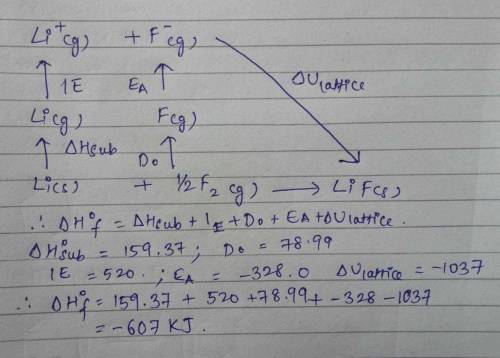 Li⁺(g) + F⁻(g)
↑ IE EA ↑ ΔU lattice
Li(g) F(g)
↑ ΔHsub Do ↑
Li(s) + 1/2 F₂ (g) → LiF(s)
∴ ΔH°f = ΔHsub + IE + Do + EA + ΔU lattice.
ΔH°sub = 159.37 ; Do = 78.99
IE = 520. ; EA = -328.0 ΔU lattice = -1037
∴ ΔH°f = 159.37 + 520 + 78.99 + -328 - 1037
= -607 KJ.